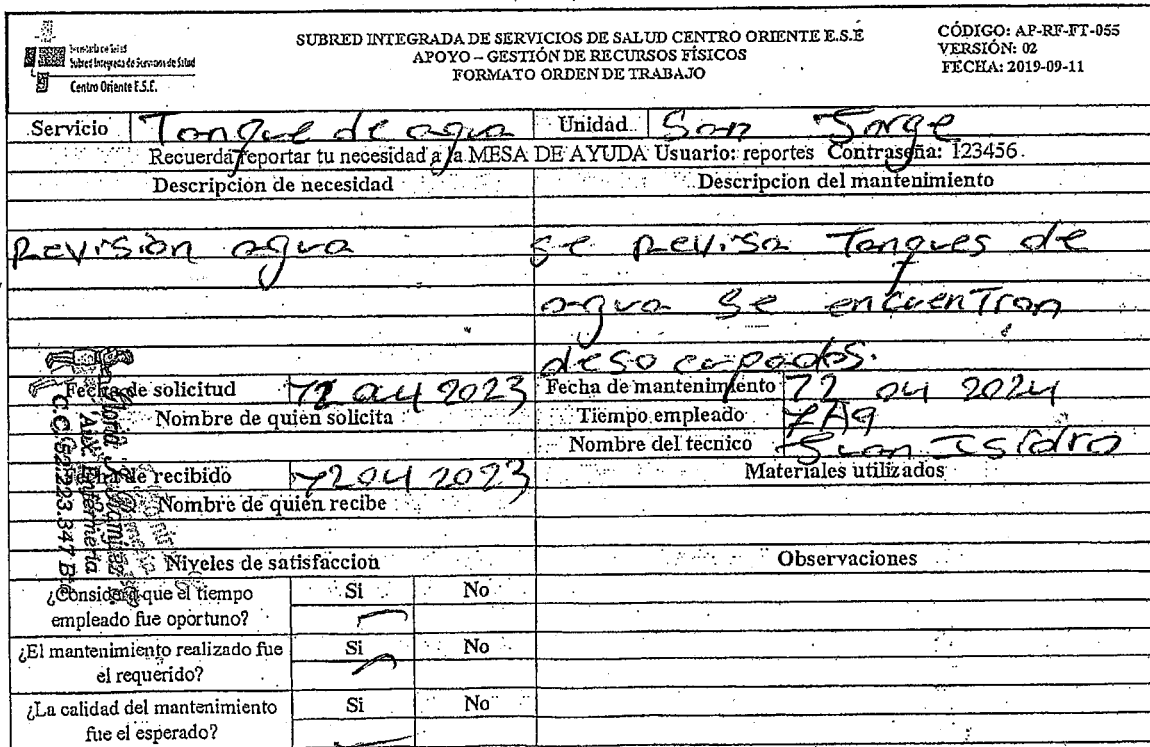 Secretaría de Salud
Subred Integrada de Servicios de Salud
Centro Oriente E.S.E.
SUBRED INTEGRADA DE SERVICIOS DE SALUD CENTRO ORIENTE E.S.E
APOYO – GESTIÓN DE RECURSOS FÍSICOS
FORMATO ORDEN DE TRABAJO
CÓDIGO: AP-RF-FT-055
VERSIÓN: 02
FECHA: 2019-09-11
Servicio Tanque de agua Unidad San Jorge
Recuerda reportar tu necesidad a la MESA DE AYUDA Usuario: reportes Contraseña: 123456
Descripcion de necesidad Descripcion del mantenimiento
Revisión agua se revisa Tanques de
agua se encuentran
desocupados.
Fecha de solicitud 12 04 2023 Fecha de mantenimiento 12 04 2024
Nombre de quien solicita Tiempo empleado
Nombre del tecnico Juan Isidro
Fecha de recibido 12 04 2023 Materiales utilizados
Nombre de quien recibe
Aux. Enfermería
Niveles de satisfaccion Observaciones
¿Considera que el tiempo empleado fue oportuno? Si No
¿El mantenimiento realizado fue el requerido? Si No
¿La calidad del mantenimiento fue el esperado? Si No